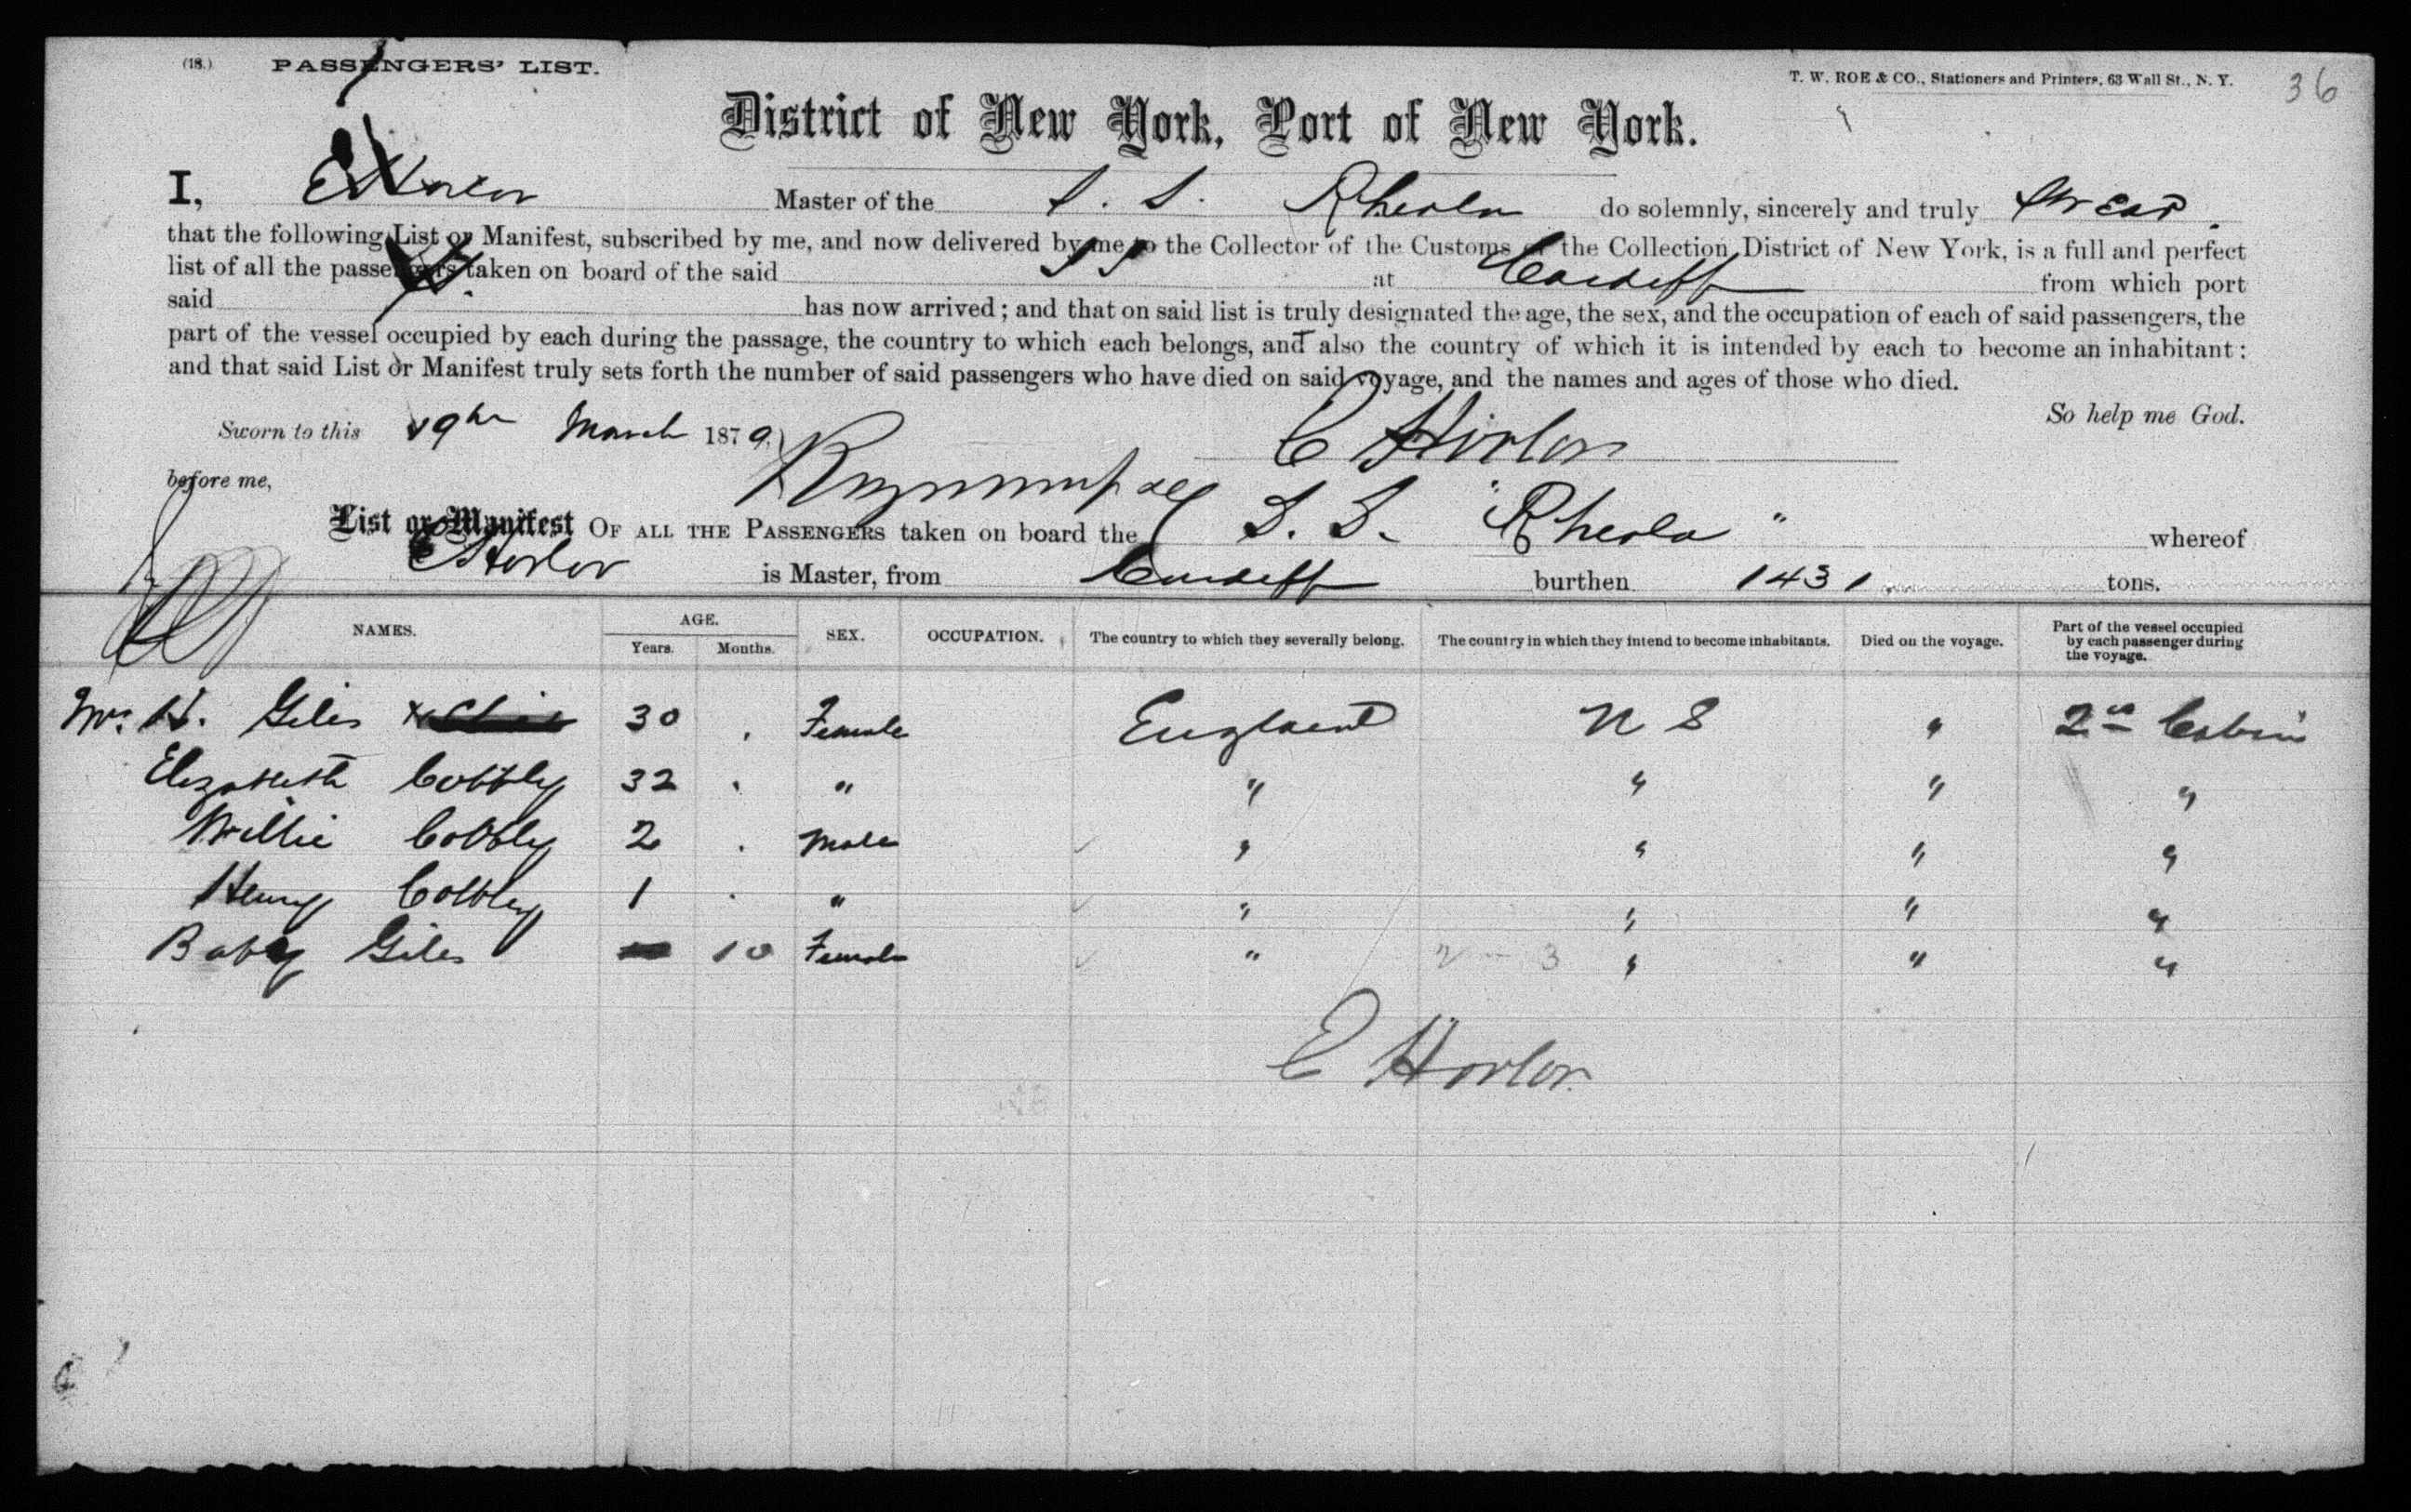 (18.) PASSENGERS' LIST.
T. W. ROE & CO., Stationers and Printers, 63 Wall St., N. Y.
36
District of New York, Port of New York.
I, E Horlor Master of the S. S. Rheola do solemnly, sincerely and truly swear
that the following List or Manifest, subscribed by me, and now delivered by me to the Collector of the Customs of the Collection District of New York, is a full and perfect
list of all the passengers taken on board of the said S S at Cardiff from which port
said has now arrived; and that on said list is truly designated the age, the sex, and the occupation of each of said passengers, the
part of the vessel occupied by each during the passage, the country to which each belongs, and also the country of which it is intended by each to become an inhabitant:
and that said List or Manifest truly sets forth the number of said passengers who have died on said voyage, and the names and ages of those who died.
So help me God.
Sworn to this 19th March 1879.
E Horlor
before me,
List or Manifest OF ALL THE PASSENGERS taken on board the S. S. "Rheola" whereof
E Horlor is Master, from Cardiff burthen 1431 tons.
NAMES. AGE. Years. Months. SEX. OCCUPATION. The country to which they severally belong. The country in which they intend to become inhabitants. Died on the voyage. Part of the vessel occupied by each passenger during the voyage.
Mrs. H. Giles 30 . Female England U S " 2nd Cabin
Elizabeth Cobbly 32 . " " " " "
Willie Cobbly 2 . Male " " " "
Henry Cobbly 1 . " " " " "
Baby Giles 10 Female " " " "
E Horlor